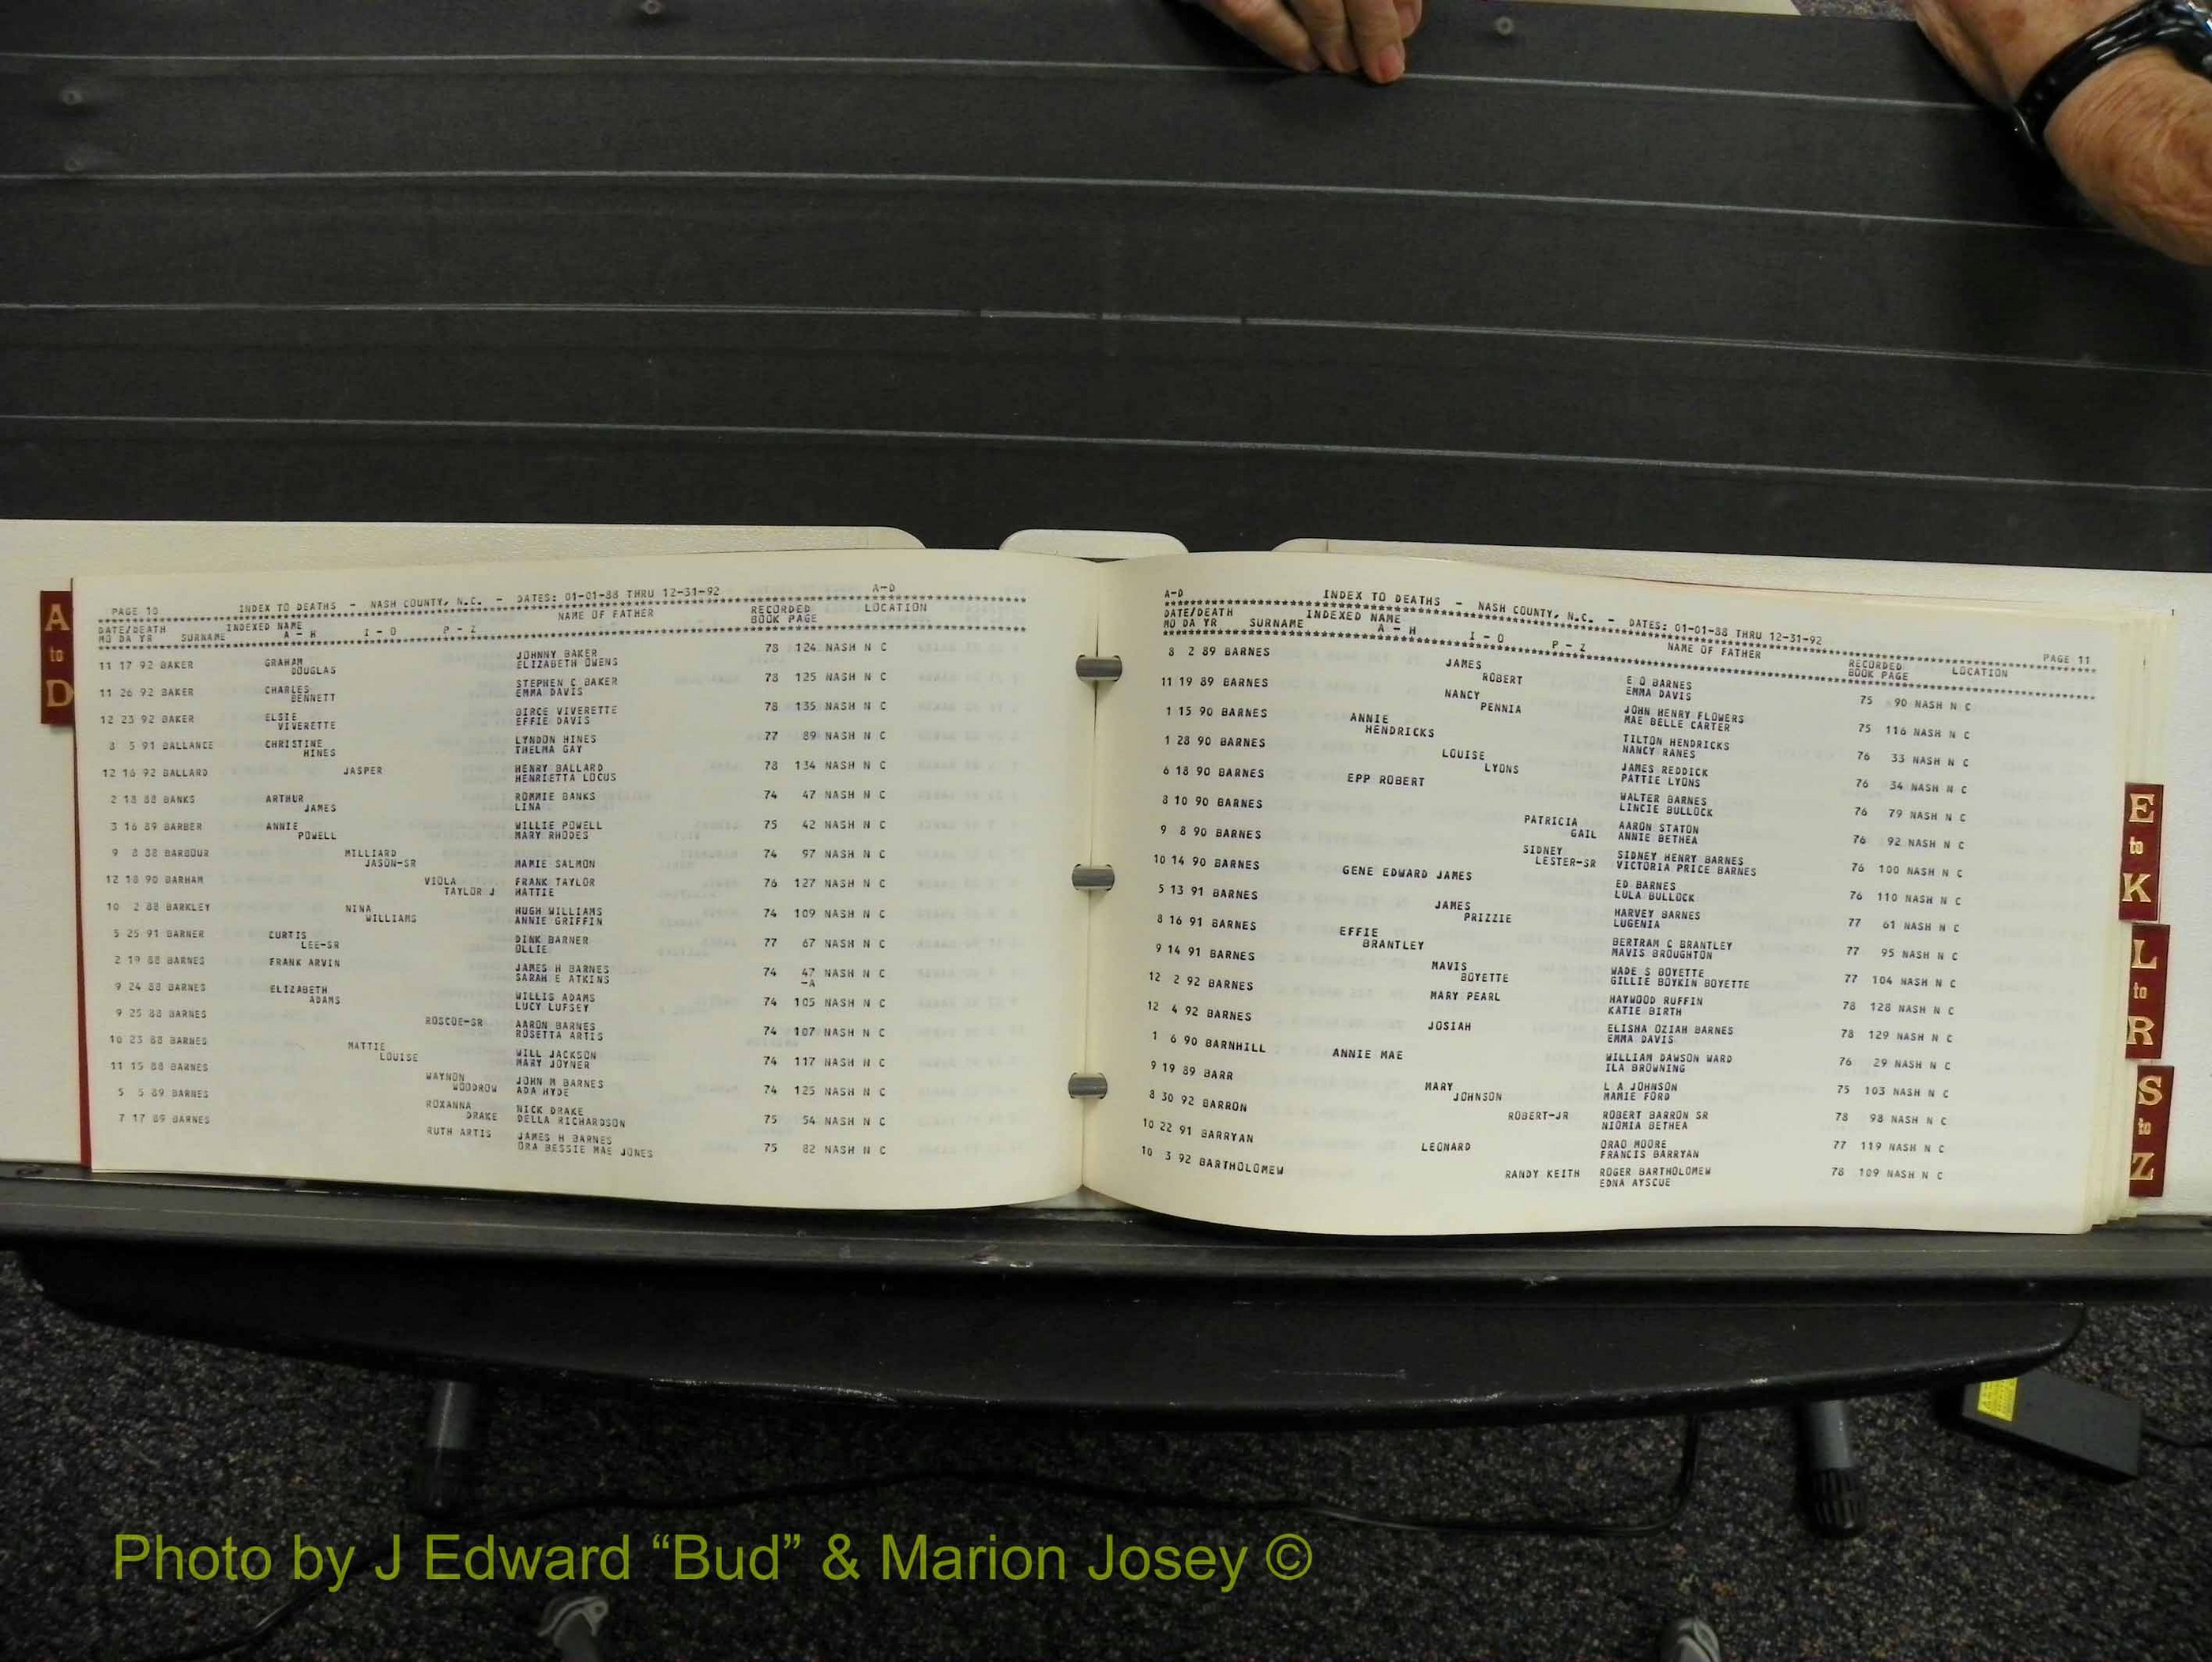 A
to
D
PAGE 10 INDEX TO DEATHS - NASH COUNTY, N.C. - DATES: 01-01-88 THRU 12-31-92 A-D
DATE/DEATH INDEXED NAME NAME OF FATHER RECORDED LOCATION
MO DA YR SURNAME A - H I - O P - Z BOOK PAGE
11 17 92 BAKER GRAHAM JOHNNY BAKER 78 124 NASH N C
DOUGLAS ELIZABETH OWENS
11 26 92 BAKER CHARLES STEPHEN C BAKER 78 125 NASH N C
BENNETT EMMA DAVIS
12 23 92 BAKER ELSIE BIRCE VIVERETTE 78 135 NASH N C
VIVERETTE EFFIE DAVIS
8 5 91 BALLANCE CHRISTINE LYNDON HINES 77 89 NASH N C
HINES THELMA GAY
12 16 92 BALLARD JASPER HENRY BALLARD 78 134 NASH N C
HENRIETTA LOCUS
2 18 88 BANKS ARTHUR ROMMIE BANKS 74 47 NASH N C
JAMES LINA
3 16 89 BARBER ANNIE WILLIE POWELL 75 42 NASH N C
POWELL MARY RHODES
9 8 88 BARBOUR MILLIARD 74 97 NASH N C
JASON-SR MAMIE SALMON
12 18 90 BARHAM VIOLA FRANK TAYLOR 76 127 NASH N C
TAYLOR J HATTIE
10 2 88 BARKLEY NINA HUGH WILLIAMS 74 109 NASH N C
WILLIAMS ANNIE GRIFFIN
5 25 91 BARNER CURTIS DINK BARNER 77 67 NASH N C
LEE-SR OLLIE
2 19 88 BARNES FRANK ARVIN JAMES H BARNES 74 47 NASH N C
SARAH E ATKINS -A
9 24 88 BARNES ELIZABETH WILLIS ADAMS 74 105 NASH N C
ADAMS LUCY LUFSEY
9 25 88 BARNES ROSCOE-SR AARON BARNES 74 107 NASH N C
ROSETTA ARTIS
10 23 88 BARNES MATTIE WILL JACKSON 74 117 NASH N C
LOUISE MARY JOYNER
11 15 88 BARNES WAYNON JOHN M BARNES 74 125 NASH N C
WOODROW ADA HYDE
5 5 89 BARNES ROXANNA NICK DRAKE 75 54 NASH N C
DRAKE DELLA RICHARDSON
7 17 89 BARNES RUTH ARTIS JAMES H BARNES 75 82 NASH N C
ORA BESSIE MAE JONES
A-D INDEX TO DEATHS - NASH COUNTY, N.C. - DATES: 01-01-88 THRU 12-31-92 PAGE 11
DATE/DEATH INDEXED NAME NAME OF FATHER RECORDED LOCATION
MO DA YR SURNAME A - H I - O P - Z BOOK PAGE
8 2 89 BARNES JAMES E O BARNES 75 90 NASH N C
ROBERT EMMA DAVIS
11 19 89 BARNES NANCY JOHN HENRY FLOWERS 75 116 NASH N C
PENNIA MAE BELLE CARTER
1 15 90 BARNES ANNIE TILTON HENDRICKS 76 33 NASH N C
HENDRICKS NANCY RANES
1 28 90 BARNES LOUISE JAMES REDDICK 76 34 NASH N C
LYONS PATTIE LYONS
6 18 90 BARNES EPP ROBERT WALTER BARNES 76 79 NASH N C
LINCIE BULLOCK
8 10 90 BARNES PATRICIA AARON STATON 76 92 NASH N C
GAIL ANNIE BETHEA
9 8 90 BARNES SIDNEY SIDNEY HENRY BARNES 76 100 NASH N C
LESTER-SR VICTORIA PRICE BARNES
10 14 90 BARNES GENE EDWARD JAMES ED BARNES 76 110 NASH N C
LULA BULLOCK
5 13 91 BARNES JAMES HARVEY BARNES 77 61 NASH N C
PRIZZIE LUGENIA
8 16 91 BARNES EFFIE BERTRAM C BRANTLEY 77 95 NASH N C
BRANTLEY MAVIS BROUGHTON
9 14 91 BARNES MAVIS WADE S BOYETTE 77 104 NASH N C
BOYETTE GILLIE BOYKIN BOYETTE
12 2 92 BARNES MARY PEARL HAYWOOD RUFFIN 78 128 NASH N C
KATIE BIRTH
12 4 92 BARNES JOSIAH ELISHA OZIAH BARNES 78 129 NASH N C
EMMA DAVIS
1 6 90 BARNHILL ANNIE MAE WILLIAM DAWSON WARD 76 29 NASH N C
ILA BROWNING
9 19 89 BARR MARY L A JOHNSON 75 103 NASH N C
JOHNSON MAMIE FORD
8 30 92 BARRON ROBERT-JR ROBERT BARRON SR 78 98 NASH N C
NIOMIA BETHEA
10 22 91 BARRYAN LEONARD ORAD MOORE 77 119 NASH N C
FRANCIS BARRYAN
10 3 92 BARTHOLOMEW RANDY KEITH ROGER BARTHOLOMEW 78 109 NASH N C
EDNA AYSCUE
E
to
K
L
to
R
S
to
Z
Photo by J Edward “Bud” & Marion Josey ©